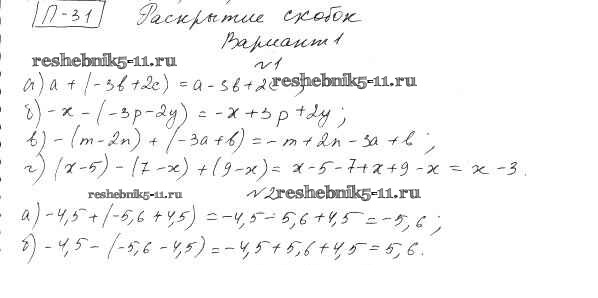 П-31 Раскрытие скобок
Вариант 1
reshebnik5-11.ru №1
а) a + (-3b + 2c) = a - 3b + 2c reshebnik5-11.ru
б) -x - (-3p - 2y) = -x + 3p + 2y;
в) -(m - 2n) + (-3a + b) = -m + 2n - 3a + b;
г) (x - 5) - (7 - x) + (9 - x) = x - 5 - 7 + x + 9 - x = x - 3.
reshebnik5-11.ru №2 reshebnik5-11.ru
а) -4,5 + (-5,6 + 4,5) = -4,5 - 5,6 + 4,5 = -5,6;
б) -4,5 - (-5,6 - 4,5) = -4,5 + 5,6 + 4,5 = 5,6.